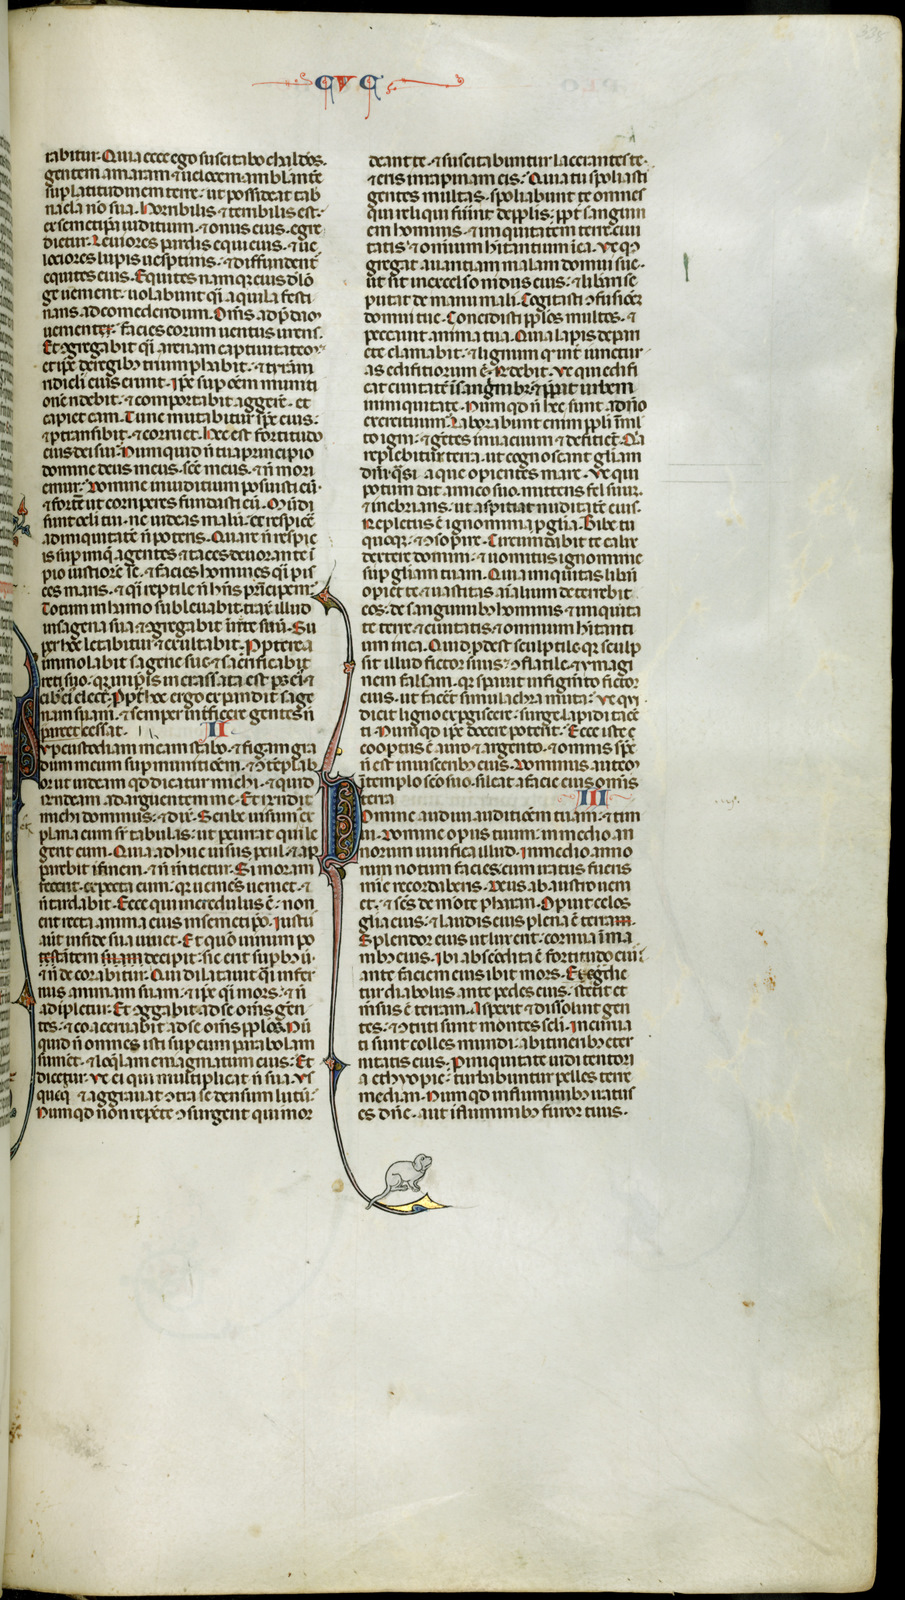 CVC
tabitur. Quia ecce ego suscitabo chaldeos.
gentem amaram & uelocem. ambulantē
sup latitudinem terre. ut possideat tab
nacla nō sua. Horribilis & terribilis est.
ex semetipā iuditium. & onus eius egre
dietur. Leuiores pardis equi eius. & ue
lociores lupis uespetinis. & diffundent̄
equites eius. Equites namque eius dlō
ge uenient. uolabunt q̄i aquila festi
nans ad comedendum. Om̄s ad p̄dam
uenientes. facies eorum uentus urens.
Et ꝯgregabit q̄i arenam captiuitatem.
et ipē de regibȝ triumphabit. & tyrāni
ridiculi eius erunt. Ipē sup oēm muniti
onē ridebit. & comportabit aggerē. et
capiet eam. Tunc mutabitur sp̄c eius.
& ptransibit. & corruet. Hec est fortitudo
eius dei sui. Numquid n̄ tu a principio
domine deus meus. scē meus. & n̄ mori
emur. Domine in iuditium posuisti eū.
& fortē ut corriperes fundasti eū. Mūdi
sunt oculi tui. ne uideas malū. & respicē
ad iniquitatē n̄ poteris. Quare n̄ respic
is sup iniq̄ agentes. & taces deuorante ī
pio iustiorē se. & facies homines q̄i pis
ces maris. & q̄i reptile n̄ hn̄s prīcipem.
Totum in hamo subleuabit. traxit illud
in sagena sua. & ꝯgregabit in rete suū. Su
per hoc letabitur & exultabit. Propterea
immolabit sagene sue. & sacrificabit
reti suo. qr in ipīs incrassata est pars ei. &
cibus ei elect. Ppt hoc ergo expandit sage
nam suam. & semper interficere gentes n̄
parcet cessat. II
Sup custodiam meam stabo. & figam gra
dum meum sup munitiōem. & ꝯtēplab
or ut uideam qd dicatur michi. & quid
respondeam ad arguentem me. Et respondit
michi dominus. & dix. Scribe uisum. &
plana eum sr tabulas. ut pcurrat qui le
gerit eum. Quia adhuc uisus pcul. & ap
parebit ī finem. & n̄ mentietur. Si moram
fecerit. expecta eum. qr ueniēs ueniet. &
n̄ tardabit. Ecce qui incredulus ē. non
erit recta anima eius in semetipō. Iustus
aut in fide sua uiuet. Et quō uinum po
tātem decipit. sic erit supbȝ uir.
& n̄ decorabitur. Qui dilatauit q̄i infer
nus animam suam. & ipē q̄i mors. & n̄
adimpletur. Et ꝯggabit ad se om̄s gen
tes. & coaceruabit ad se om̄s pplos. Nū
quid n̄ omnes isti sup eum parabolam
sument. & loqlam enigmatum eius. Et
dicetur. Ve ei qui multiplicat n̄ sua. Vs
quequo & aggrauat ꝯtra se densum lutū.
Numqd non repente ꝯsurgent qui mor
deant te. & suscitabuntur lacerantes te.
& eris in rapinam eis. Quia tu spoliasti
gentes multas. spoliabunt te omnes
qui reliqui fuerint de pplis. ppt sanguin
em hominis. & iniquitatem terre ciui
tatis & omnium hitantium in ea. Ve qui ꝯ
gregat auaritiam malam domui sue.
ut sit in excelso nidus eius. & liberari se
putat de manu mali. Cogitasti ꝯfusionē
domui tue. Concidisti pplos multos. &
peccauit anima tua. Quia lapis de pari
ete clamabit. & lignum qr int iunctur
as edifitiorum ē. rūdebit. Ve qui edifi
cat ciuitatē in sanguinibȝ. & pparat urbem
in iniquitate. Numqd n̄ hec sunt a dn̄o
exercituum. Laborabunt enim ppli ī mul
to igni. & gētes in uacuum & deficient. Qia
replebitur terra. ut cognoscant gliam
dn̄i. q̄si aque operientes mare. Ve qui
potum dat amico suo. mittens fel suum.
& inebrians. ut aspitiat nuditatē eius.
Repletus ē ignominia p glia. Bibe tu
quoqȝ. & ꝯsopire. Circumdabit te calix
dextere domini. & uomitus ignominie
sup gliam tuam. Quia iniquitas libani
opiet te. & uastitas aīalium deterrebit
eos. de sanguinibȝ hominis. & iniquita
te terre & ciuitatis & omnium hitanti
um in ea. Quid pdest sculptile. qr sculp
sit illud fictor suus. ꝯflatile. & ymagi
nem falsam. qr sperauit in figmento fictor
eius. ut facēt simulachra muta. Ve qui
dicit ligno expgiscere. surge lapidi tacē
ti. Numqd ipē docere poterit. Ecce iste c
coopertus ē auro & argento. & omnis sp̄c
n̄ est in uisceribȝ eius. Dominus autem
ī templo scō suo. sileat a facie eius omīs
terra. III
Domine audiui auditiōem tuam. & tim
ui. Domine opus tuum. in medio an
norum uiuifica illud. In medio anno
rum notum facies. cum iratus fueris
mīe recordaberis. Deus ab austro ueni
et. & scs de mōte pharan. Opuit celos
glia eius. & laudis eius plena ē terra.
Splendor eius ut lux erit. cornua ī ma
nibȝ eius. Ibi abscōdita ē fortitudo eius.
ante faciem eius ibit mors. Egredie
tur diabolus ante pedes eius. stetit et
mensus ē terram. Aspexit & dissoluit gen
tes. & ꝯtriti sunt montes seculi. Incurua
ti sunt colles mundi. ab itineribȝ eter
nitatis eius. Pro iniquitate uidi tentori
a ethyopie. turbabuntur pelles terre
madian. Numqd in fluminibȝ iratus
es dn̄e. aut ī fluminibȝ furor tuus.